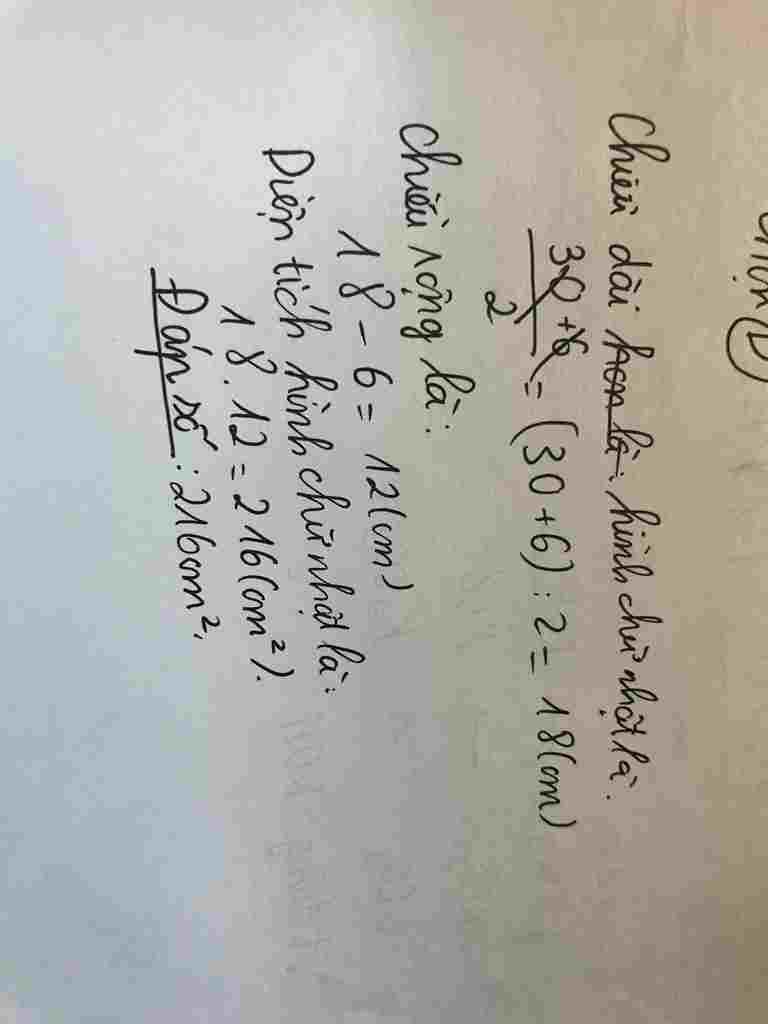 Chọn D
Chiều dài hơn là: hình chữ nhật là.
30+6/2 = (30+6) : 2 = 18(cm)
Chiều rộng là:
18 - 6 = 12(cm)
Diện tích hình chữ nhật là:
18 . 12 = 216(cm²).
Đáp số : 216cm².